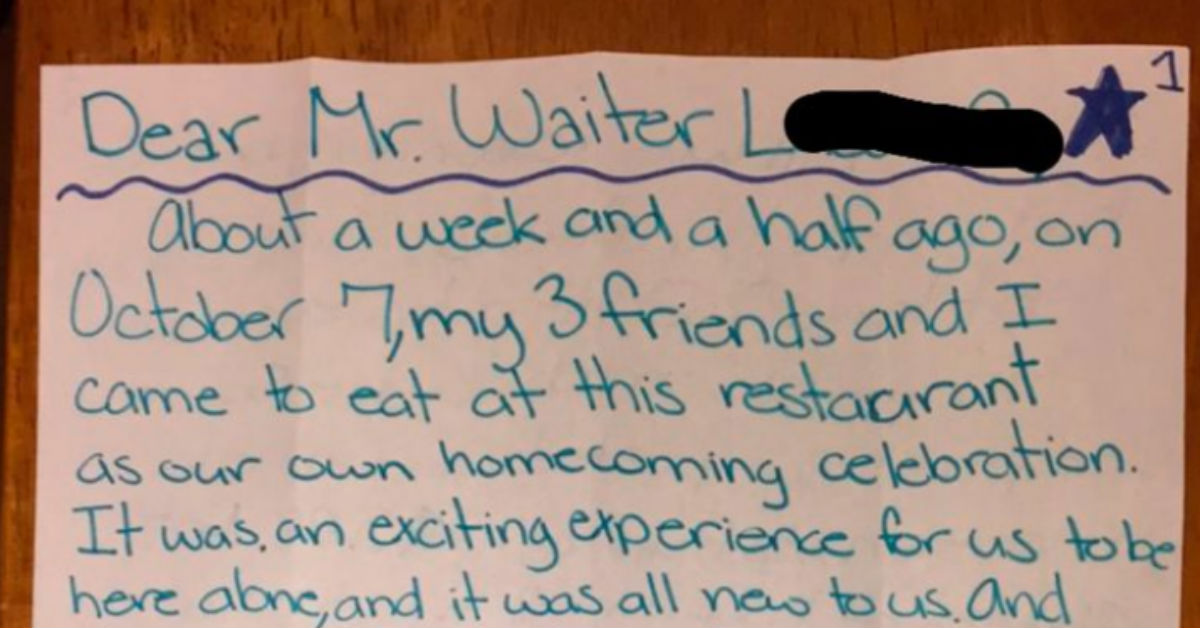 Dear Mr. Waiter L
1
About a week and a half ago, on
October 7, my 3 friends and I
came to eat at this restaurant
as our own homecoming celebration.
It was an exciting experience for us to be
here alone, and it was all new to us. And